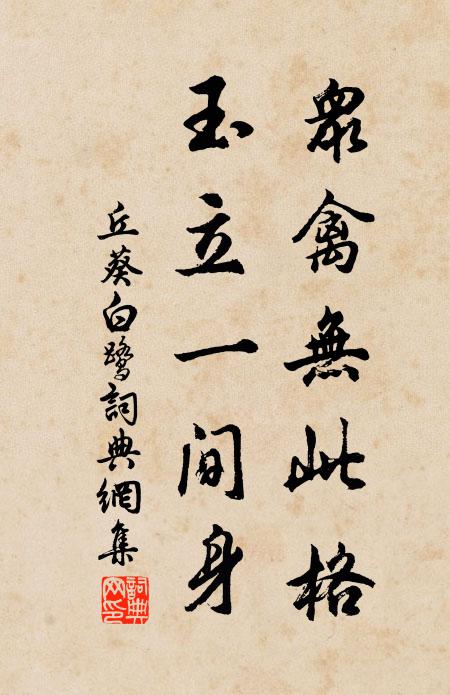 眾禽無此格
玉立一間身
丘葵白鹭詞典網集
詞典
网印